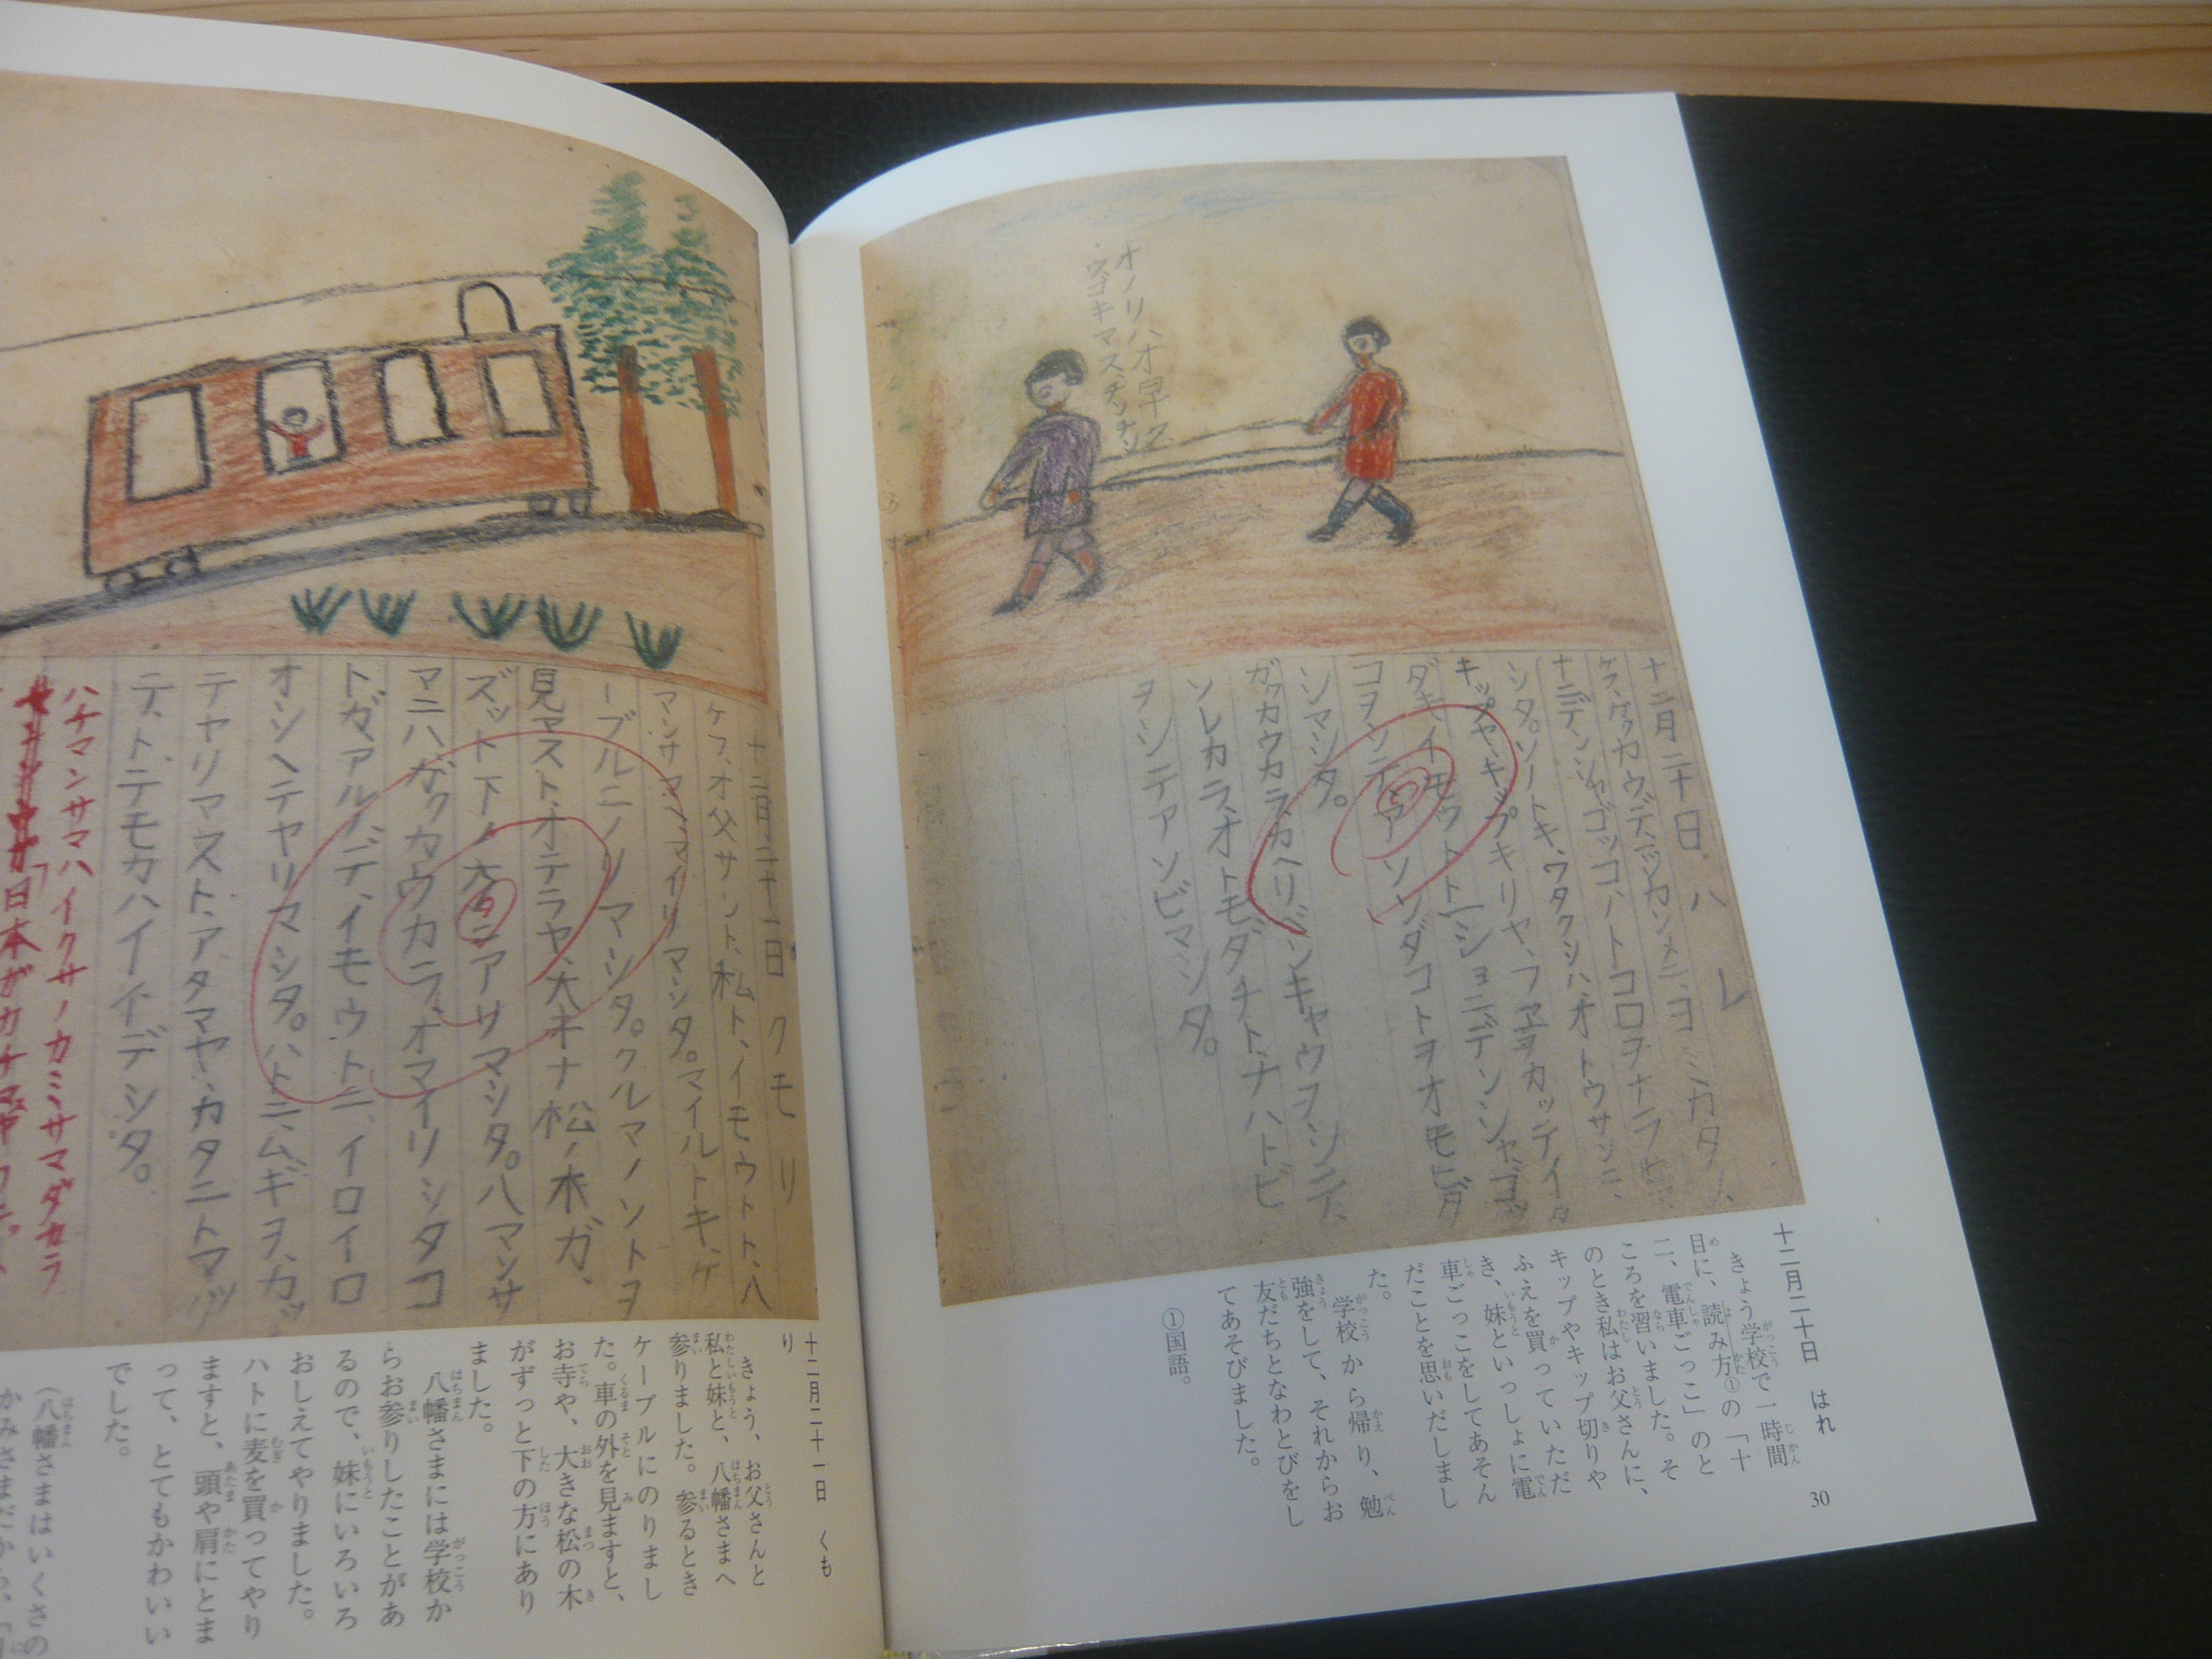 オノリハオ早ク
ウゴキマス、チンチン
十二月二十日 ハレ
ケフ、ガクカウデ、一ジカンメニ、ヨミカタノ、
十二デンシャゴッコ、ノトコロヲナラヒマ
シタ。ソノトキ、ワタクシハ、オトウサンニ、
キップヤ、キップキリヤ、フエヲカッテイタ
ダキ、イモウトト一ショニ、デンシャゴッ
コヲシテアソンダコトヲオモヒダ
シマシタ。
ガクカウカラ、カヘリ、ベンキャウヲシテ、
ソレカラ、オトモダチト、ナハトビ
ヲシテアソビマシタ。
十二月二十日 はれ
きょう学校で一時間
目に、読み方①の「十
二、電車ごっこ」のと
ころを習いました。そ
のとき私はお父さんに、
キップやキップ切りや
ふえを買っていただ
き、妹といっしょに電
車ごっこをしてあそん
だことを思いだしまし
た。
学校から帰り、勉
強をして、それからお
友だちとなわとびをし
てあそびました。
①国語。
30
十二月二十一日 クモリ
ケフ、オ父サント、私ト、イモウトト、八
マンサマヘ、マイリマシタ。マイルトキ、ケ
ーブルニノリマシタ。クルマノソトヲ
見マスト、オテラヤ、大キナ松ノ木ガ、
ズット下ノ方ニアリマシタ。八マンサ
マニハ、ガクカウカラ、オマイリシタコ
トガアルノデ、イモウトニ、イロイロ
オシヘテヤリマシタ。ハトニ、ムギヲ、カッ
テヤリマスト、アタマヤ、カタニトマッ
テ、トテモカハイイデシタ。
ハチマンサマハイクサノカミサマダカラ
十二月二十一日 くも
り
きょう、お父さんと
私と妹と、八幡さまへ
参りました。参るとき
ケーブルにのりまし
た。車の外を見ますと、
お寺や、大きな松の木
がずっと下の方にあり
ました。
八幡さまには学校か
らお参りしたことがあ
るので、妹にいろいろ
おしえてやりました。
ハトに麦を買ってやり
ますと、頭や肩にとま
って、とてもかわいい
でした。
(八幡さまはいくさの